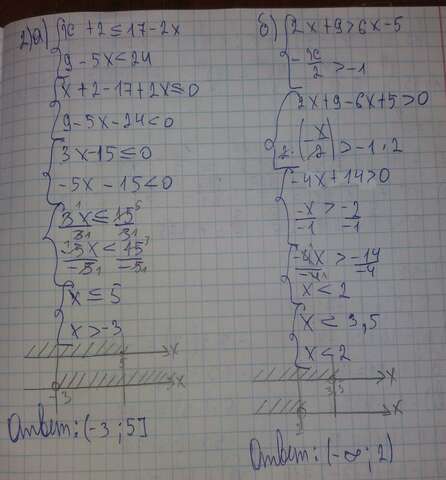 2) а) { x + 2 ≤ 17 - 2x
9 - 5x < 24
{ x + 2 - 17 + 2x ≤ 0
9 - 5x - 24 < 0
{ 3x - 15 ≤ 0
-5x - 15 < 0
{ 3x/3 ≤ 15/3
-5x/-5 < 15/-5
{ x ≤ 5
x > -3
5 x
-3 x
Ответ: (-3 ; 5]
б) { 2x + 9 > 6x - 5
-x/2 > -1
{ 2x + 9 - 6x + 5 > 0
2·(x/2) > -1·2
{ -4x + 14 > 0
-x/-1 > -2/-1
{ -4x/-4 > -14/-4
x < 2
{ x < 3,5
x < 2
3,5 x
2 x
Ответ: (-∞ ; 2)